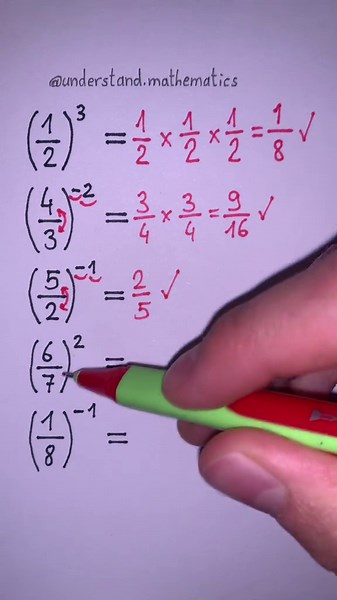 @understand.mathematics
(1/2)³ = 1/2 × 1/2 × 1/2 = 1/8 ✓
(4/3)⁻² = 3/4 × 3/4 = 9/16 ✓
(5/2)⁻¹ = 2/5 ✓
(6/7)² =
(1/8)⁻¹ =